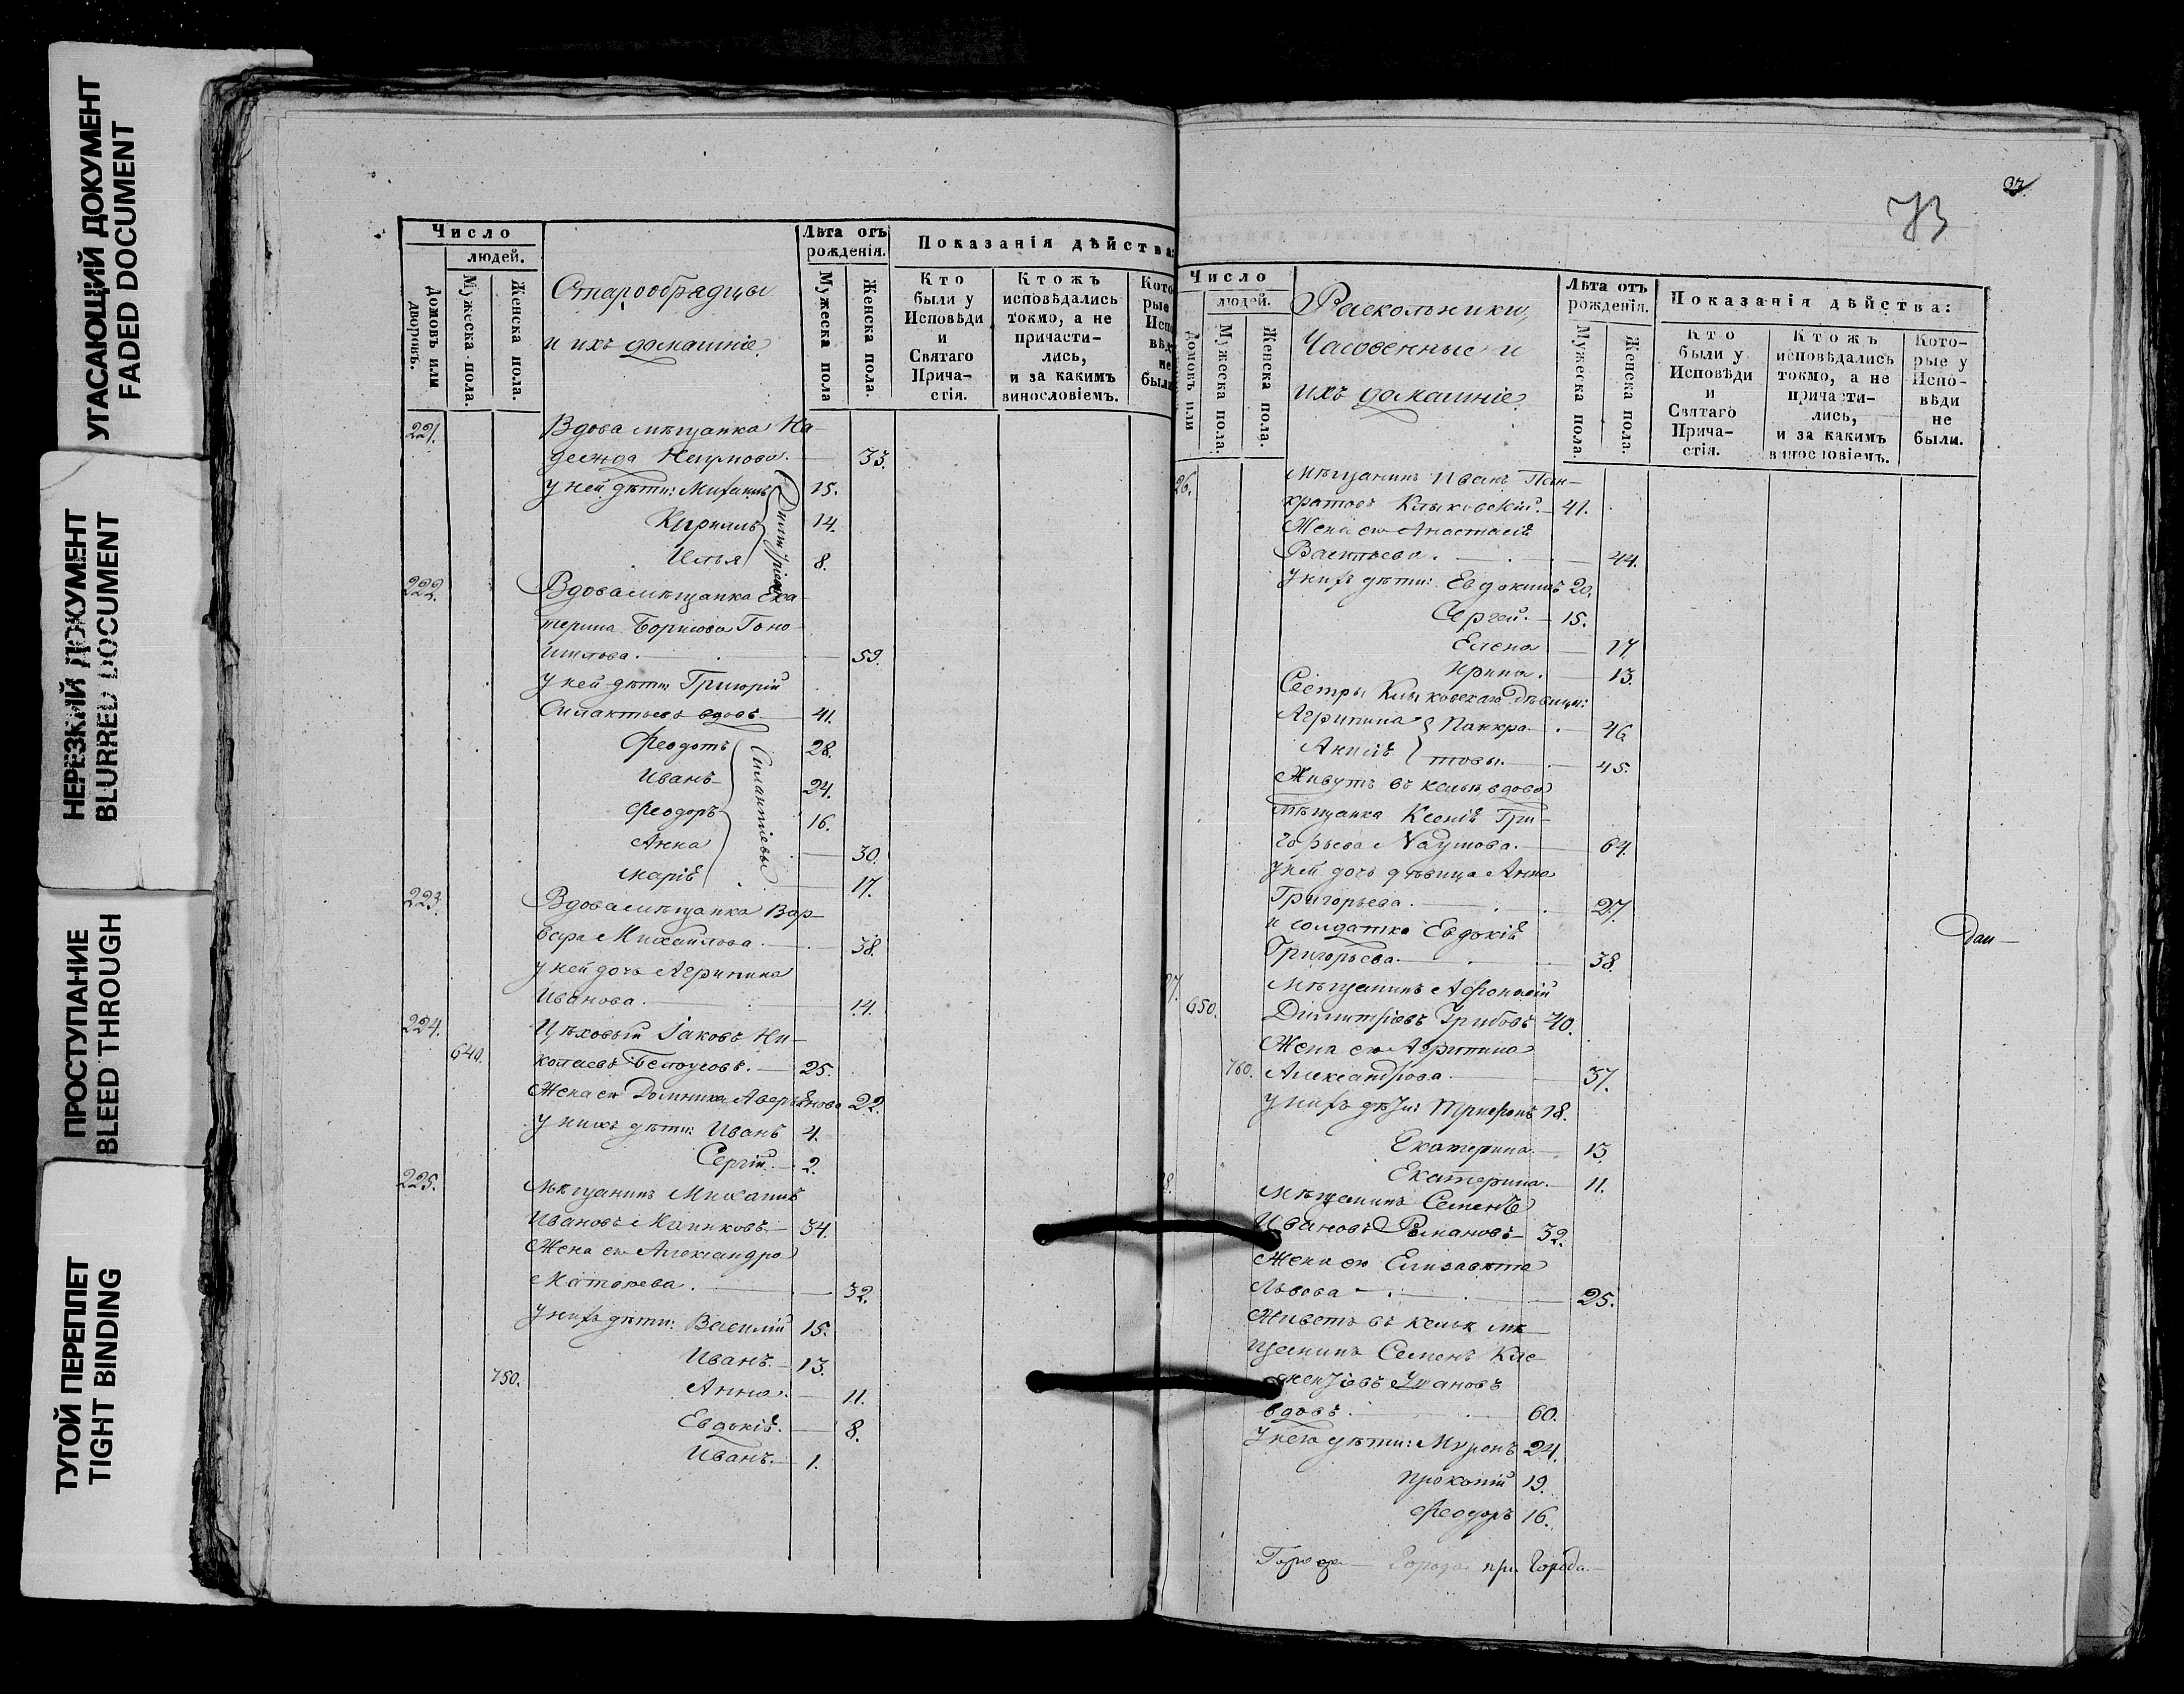 УГАСАЮЩИЙ ДОКУМЕНТ
FADED DOCUMENT
НЕРЕЗКИЙ ДОКУМЕНТ
BLURRED DOCUMENT
ПРОСТУПАНИЕ
BLEED THROUGH
ТУГОЙ ПЕРЕПЛЕТ
TIGHT BINDING
Число
людей.
Домовъ или дворовъ.
Мужеска пола.
Женска пола.
Старообрядцы
и ихъ домашніе.
Лѣта отъ рожденія.
Мужеска пола
Женска пола.
Показанія дѣйства:
Кто были у Исповѣди и Святаго Прича-стія.
Ктожъ исповѣдались токмо, а не причасти-лись, и за какимъ винословіемъ.
221. Вдова мѣщанка На-
дежда Наумова. 33.
у ней дѣти: Михаилъ 15.
Кириллъ 14.
Илья 8.
Димитріевы
222. Вдова мѣщанка Ека-
терина Борисова Гоно-
шилова. 59.
у ней дѣти: Григорій
Силантьевъ вдовъ. 41.
Феодотъ 28.
Иванъ 24.
Феодоръ 16.
Анна 30.
Марія 17.
Силантіевы
223. Вдова мѣщанка Вар-
вара Михайлова. 38.
у ней дочь Агрипина
Иванова. 14.
224. Цѣховый Іаковъ Ни-
640. колаевъ Белоусовъ. 25.
Жена ею Домника Аверьянова 22.
у нихъ дѣти: Иванъ 4.
Сергій. 2.
225. Мѣщанинъ Михаилъ
Ивановъ 34.
Жена ею Александра
Матвѣева. 32.
у нихъ дѣти: Василій 15.
Иванъ. 13.
750. Анна. 11.
Евдокія. 8.
Иванъ. 1.
73
37.
Число
людей.
Домовъ или
Мужеска пола.
Женска пола.
Раскольники,
Часовенные и
ихъ домашніе.
Лѣта отъ рожденія.
Мужеска пола.
Женска пола.
Показанія дѣйства:
Кто были у Исповѣди и Святаго Прича-стія.
Ктожъ исповѣдались токмо, а не причасти-лись, и за какимъ винословіемъ.
Кото-рые у Испо-вѣди не были.
26. Мѣщанинъ Иванъ Пан-
кратовъ Клыковскій. 41.
Жена ею Анастасія
Васильева. 44.
у нихъ дѣти: Евдокимъ 20.
Сергей. 15.
Елена 17.
Ирина. 13.
Сестры Клыковскаго дѣвицы:
Агрипина Панкра- 46
Анисія товы. 45.
Живутъ въ кельѣ вдова
мѣщанка Ксенія Гри-
горьева Наумова. 64.
у ней дочь дѣвица Анна
Григорьева. 27.
и солдатка Евдокія
Григорьева. 38.
27. Мѣщанинъ Афонасій
650. Димитріевъ Грибовъ 40.
Жена ею Агрипина
760. Александрова. 37.
у нихъ дѣти: Трифонъ 18.
Екатерина. 13.
Екатерина. 11.
8. Мѣщанинъ Семенъ
Ивановъ Романовъ 32.
Жена ею Елизавета
Львова 25.
Живетъ въ кельѣ мѣ-
щанинъ Семенъ
вдовъ. 60.
У него дѣти: Миронъ 24.
Прокопій 19.
Феодоръ 16.
Города пр. Города